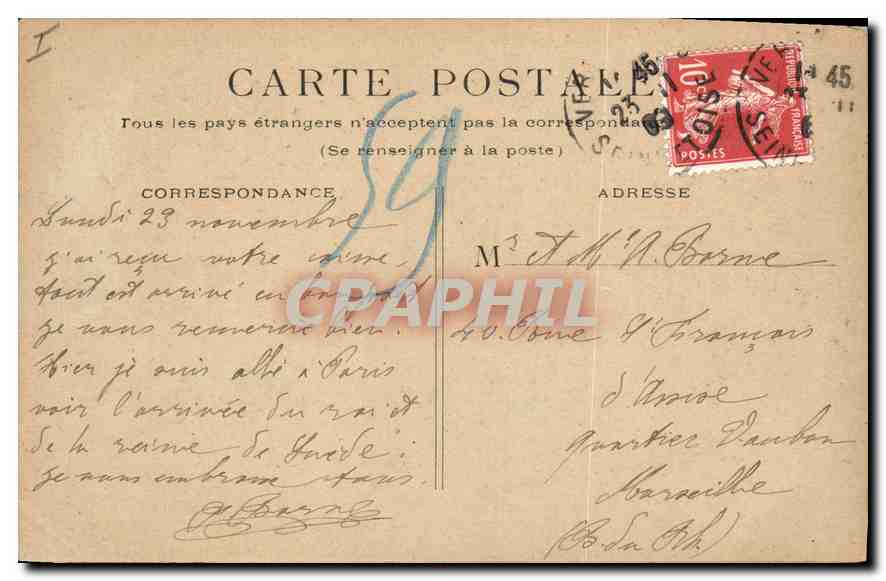 I
CARTE POSTALE
Tous les pays étrangers n'acceptent pas la correspondance
(Se renseigner à la poste)
59
10
RÉPUBLIQUE FRANÇAISE
POSTES
45
23
SEINE
OISE
45
CORRESPONDANCE
Lundi 23 novembre
j'ai reçu votre
tout est arrivé en bon état
je vous remercie bien.
Hier je suis allé à Paris
voir l'arrivée du roi et
de la reine de Suède.
je vous embrasse tous.
A Borne
ADRESSE
Mr et Me A. Borne
40. Rue St François
d'Assise
quartier Vauban
Marseille
(B. du Rh.)
CPAPHIL